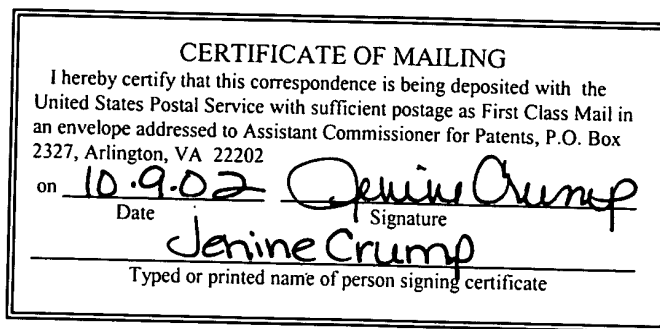 CERTIFICATE OF MAILING
I hereby certify that this correspondence is being deposited with the
United States Postal Service with sufficient postage as First Class Mail in
an envelope addressed to Assistant Commissioner for Patents, P.O. Box
2327, Arlington, VA 22202
on 10.9.02 Jenine Crump
Date Signature
Jenine Crump
Typed or printed name of person signing certificate